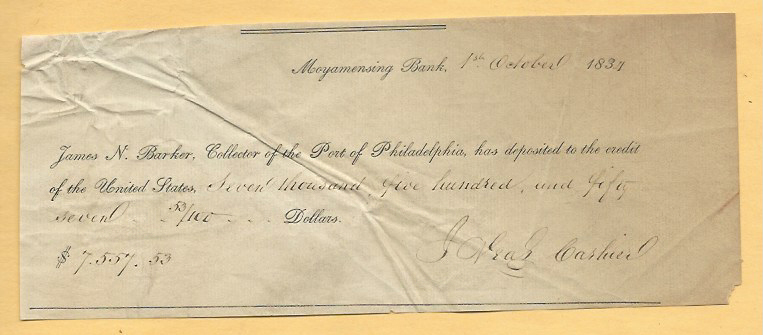 Moyamensing Bank, 1st October 1837
James N. Barker, Collector of the Port of Philadelphia, has deposited to the credit
of the United States, Seven thousand five hundred, and fifty
seven 53/100 Dollars.
$ 7.557.53
Cashier